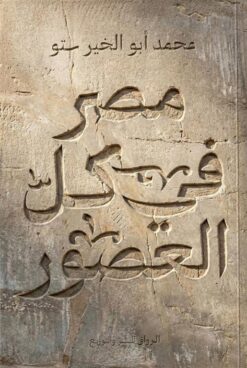 محمد أبو الخير ستو
مصر
في كل
العصور
الرواق للنشر والتوزيع